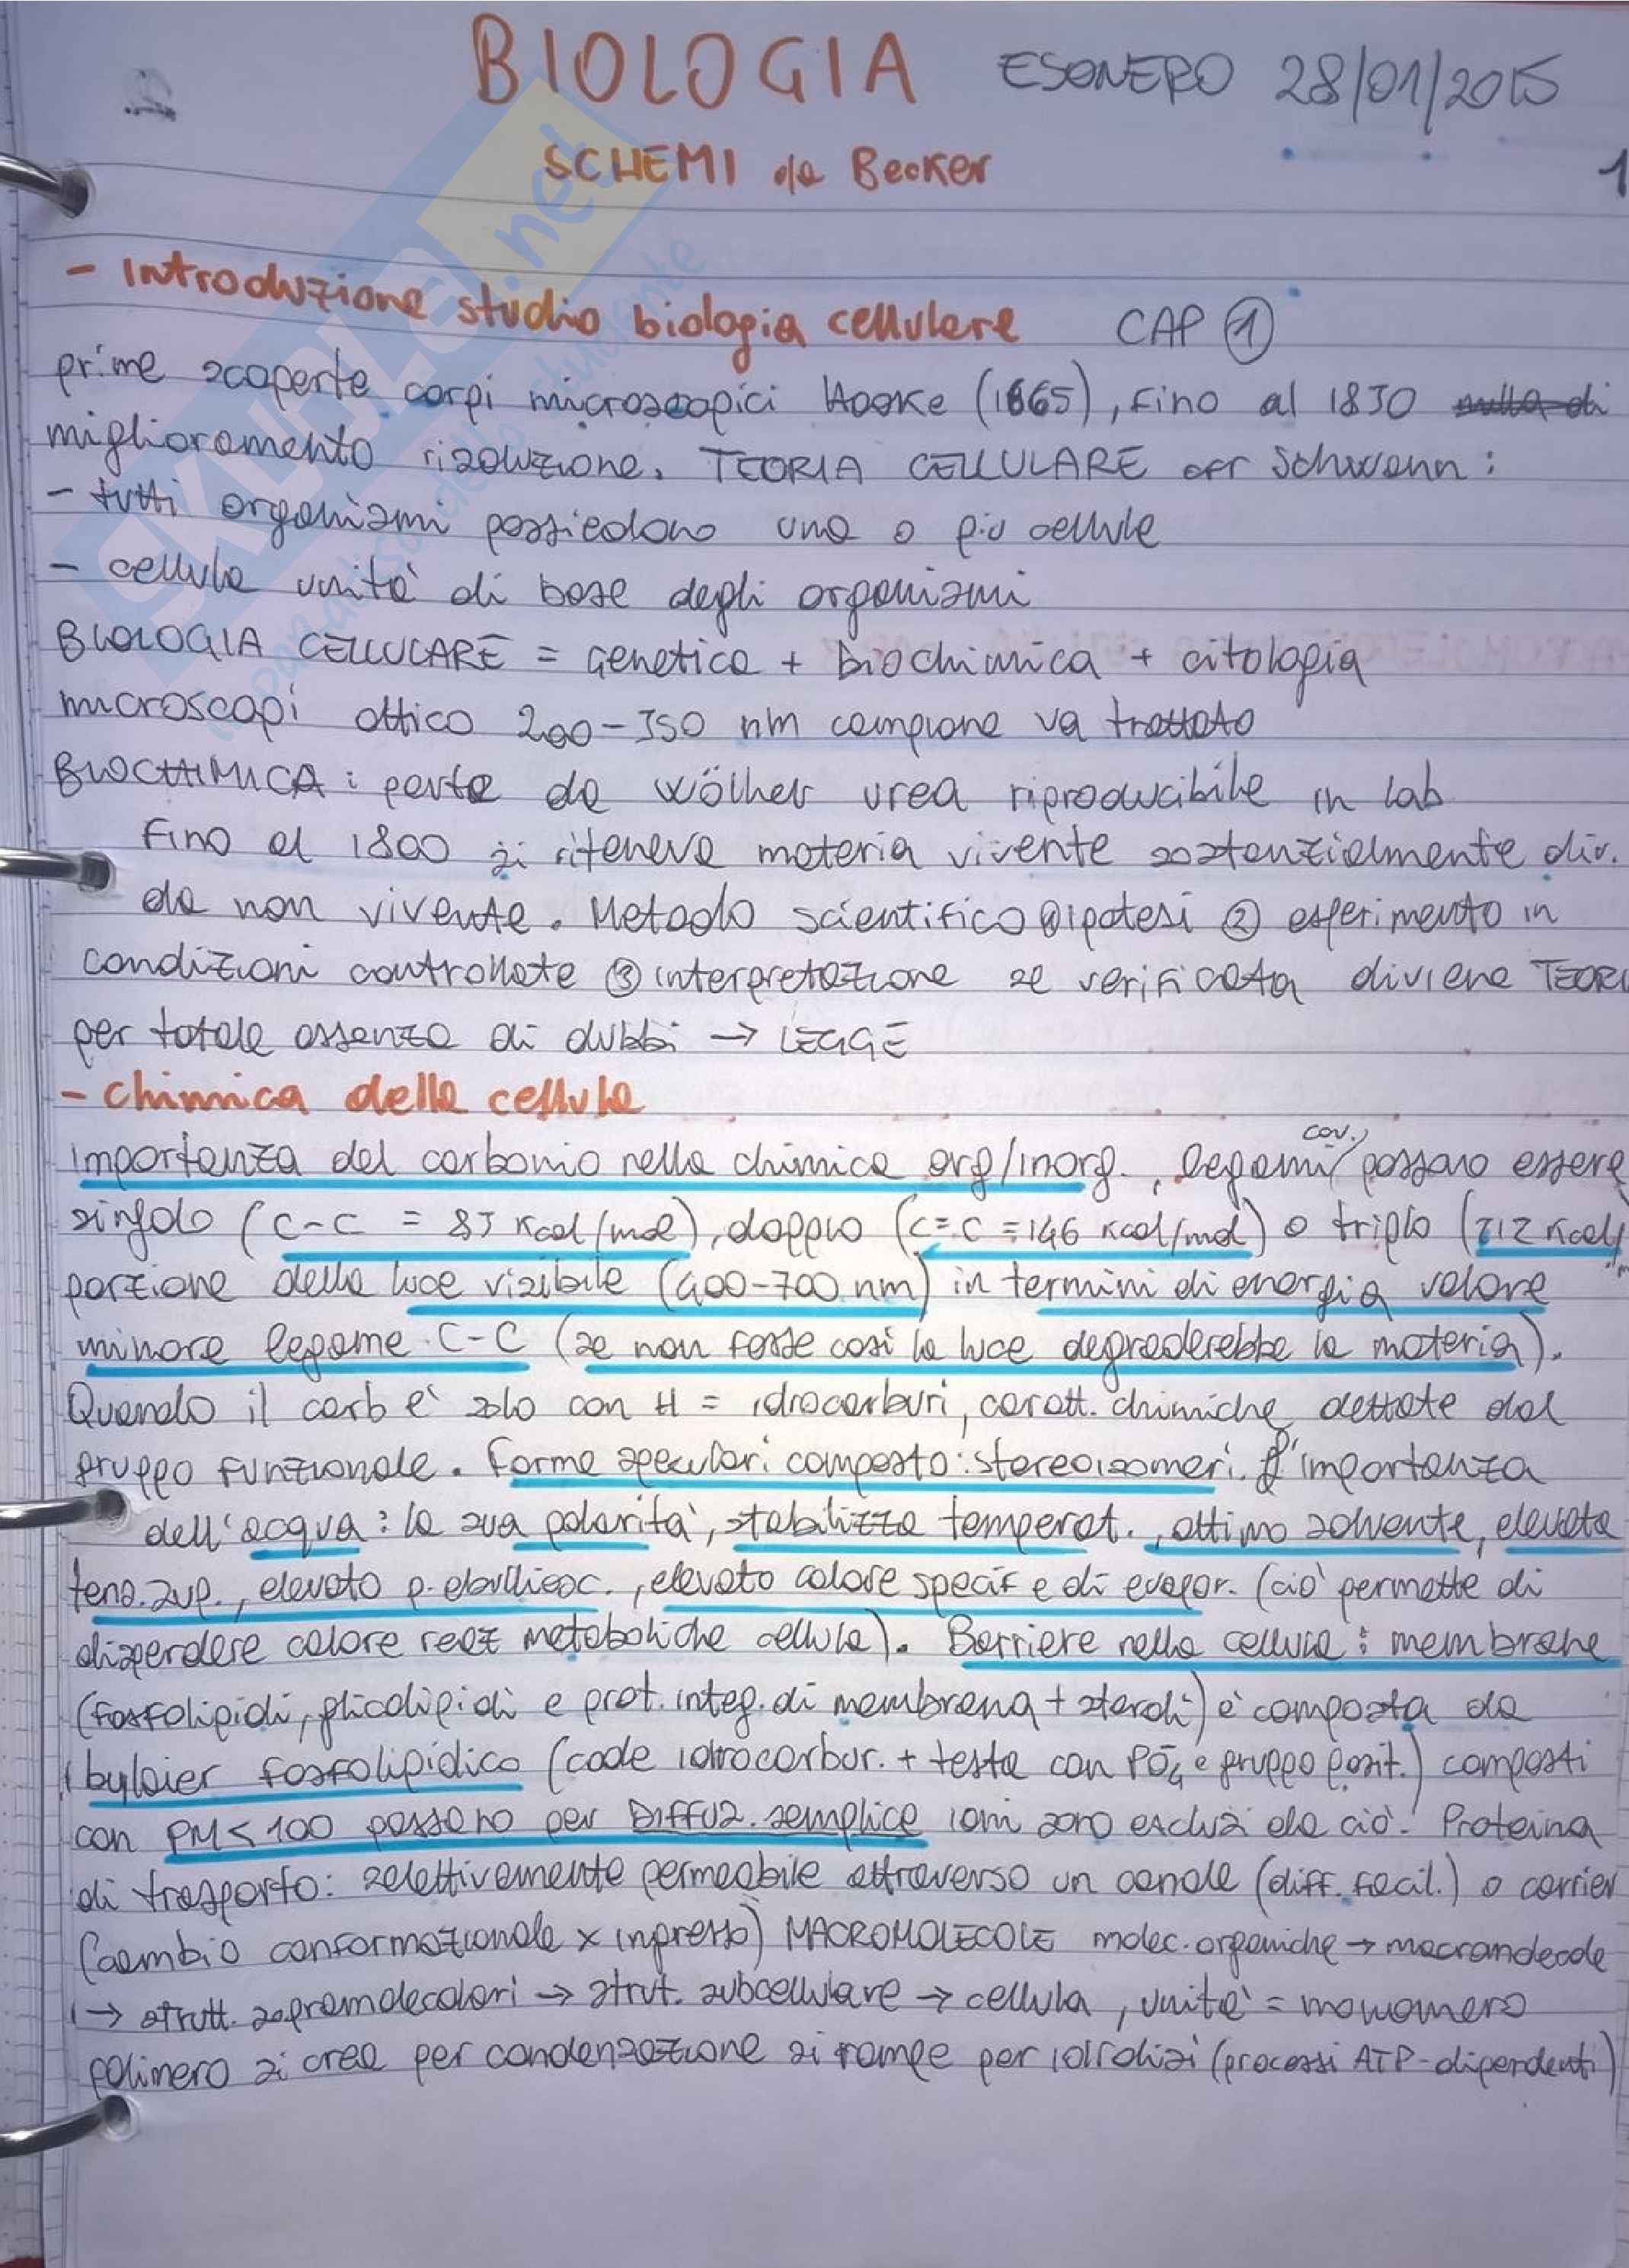 BIOLOGIA ESONERO 28/01/2015
SCHEMI da Becker
1
- Introduzione studio biologia cellulare CAP 1
prime scoperte corpi microscopici Hooke (1665), fino al 1830 nulla di
miglioramento risoluzione. TEORIA CELLULARE Schwann:
- tutti organismi possiedono una o più cellule
- cellula unità di base degli organismi
BIOLOGIA CELLULARE = Genetica + biochimica + citologia
microscopi ottico 200-350 nm campione va trattato
BIOCHIMICA: parte da Wölher urea riproducibile in lab
Fino al 1800 si riteneva materia vivente sostanzialmente div.
da non vivente. Metodo scientifico ① ipotesi ② esperimento in
condizioni controllate ③ interpretazione se verificata diviene TEORI
per totale assenza di dubbi → LEGGE
- Chimica della cellula
importanza del carbonio nella chimica org/inorg., legami cov. possono essere
singolo (C-C = 83 Kcal/mol), doppio (C=C = 146 Kcal/mol) o triplo (212 Kcal/
porzione della luce visibile (400-700 nm) in termini di energia valore
minore legame C-C (se non fosse così la luce degraderebbe la materia).
Quando il carb è solo con H = idrocarburi, caratt. chimiche dettate dal
gruppo funzionale. Forme speculari composto: stereoisomeri. L'importanza
dell'acqua: la sua polarità, stabilizza temperat., ottimo solvente, elevata
tens. sup., elevato p. ebollizoc., elevato calore specif e di evapor. (ciò permette di
disperdere calore reaz metaboliche cellula). Barriere nella cellula: membrane
(fosfolipidi, glicolipidi e prot. integ. di membrana + steroli) è composta da
bylaier fosfolipidico (code idrocarbur. + testa con PO₄⁻ e gruppo posit.) composti
con PM<100 passano per DIFFUS. semplice ioni sono esclusi da ciò. Proteina
di trasporto: selettivamente permeabile attraverso un canale (diff. facil.) o carrier
(cambio conformazionale x ingresso) MACROMOLECOLE molec. organiche → macromolecole
→ strutt. sopramolecolari → strut. subcellulare → cellula, unità = monomero
polimero si crea per condensazione si rompe per idrolisi (processi ATP-dipendenti)
SKUOLA.net
il paradiso dello studente